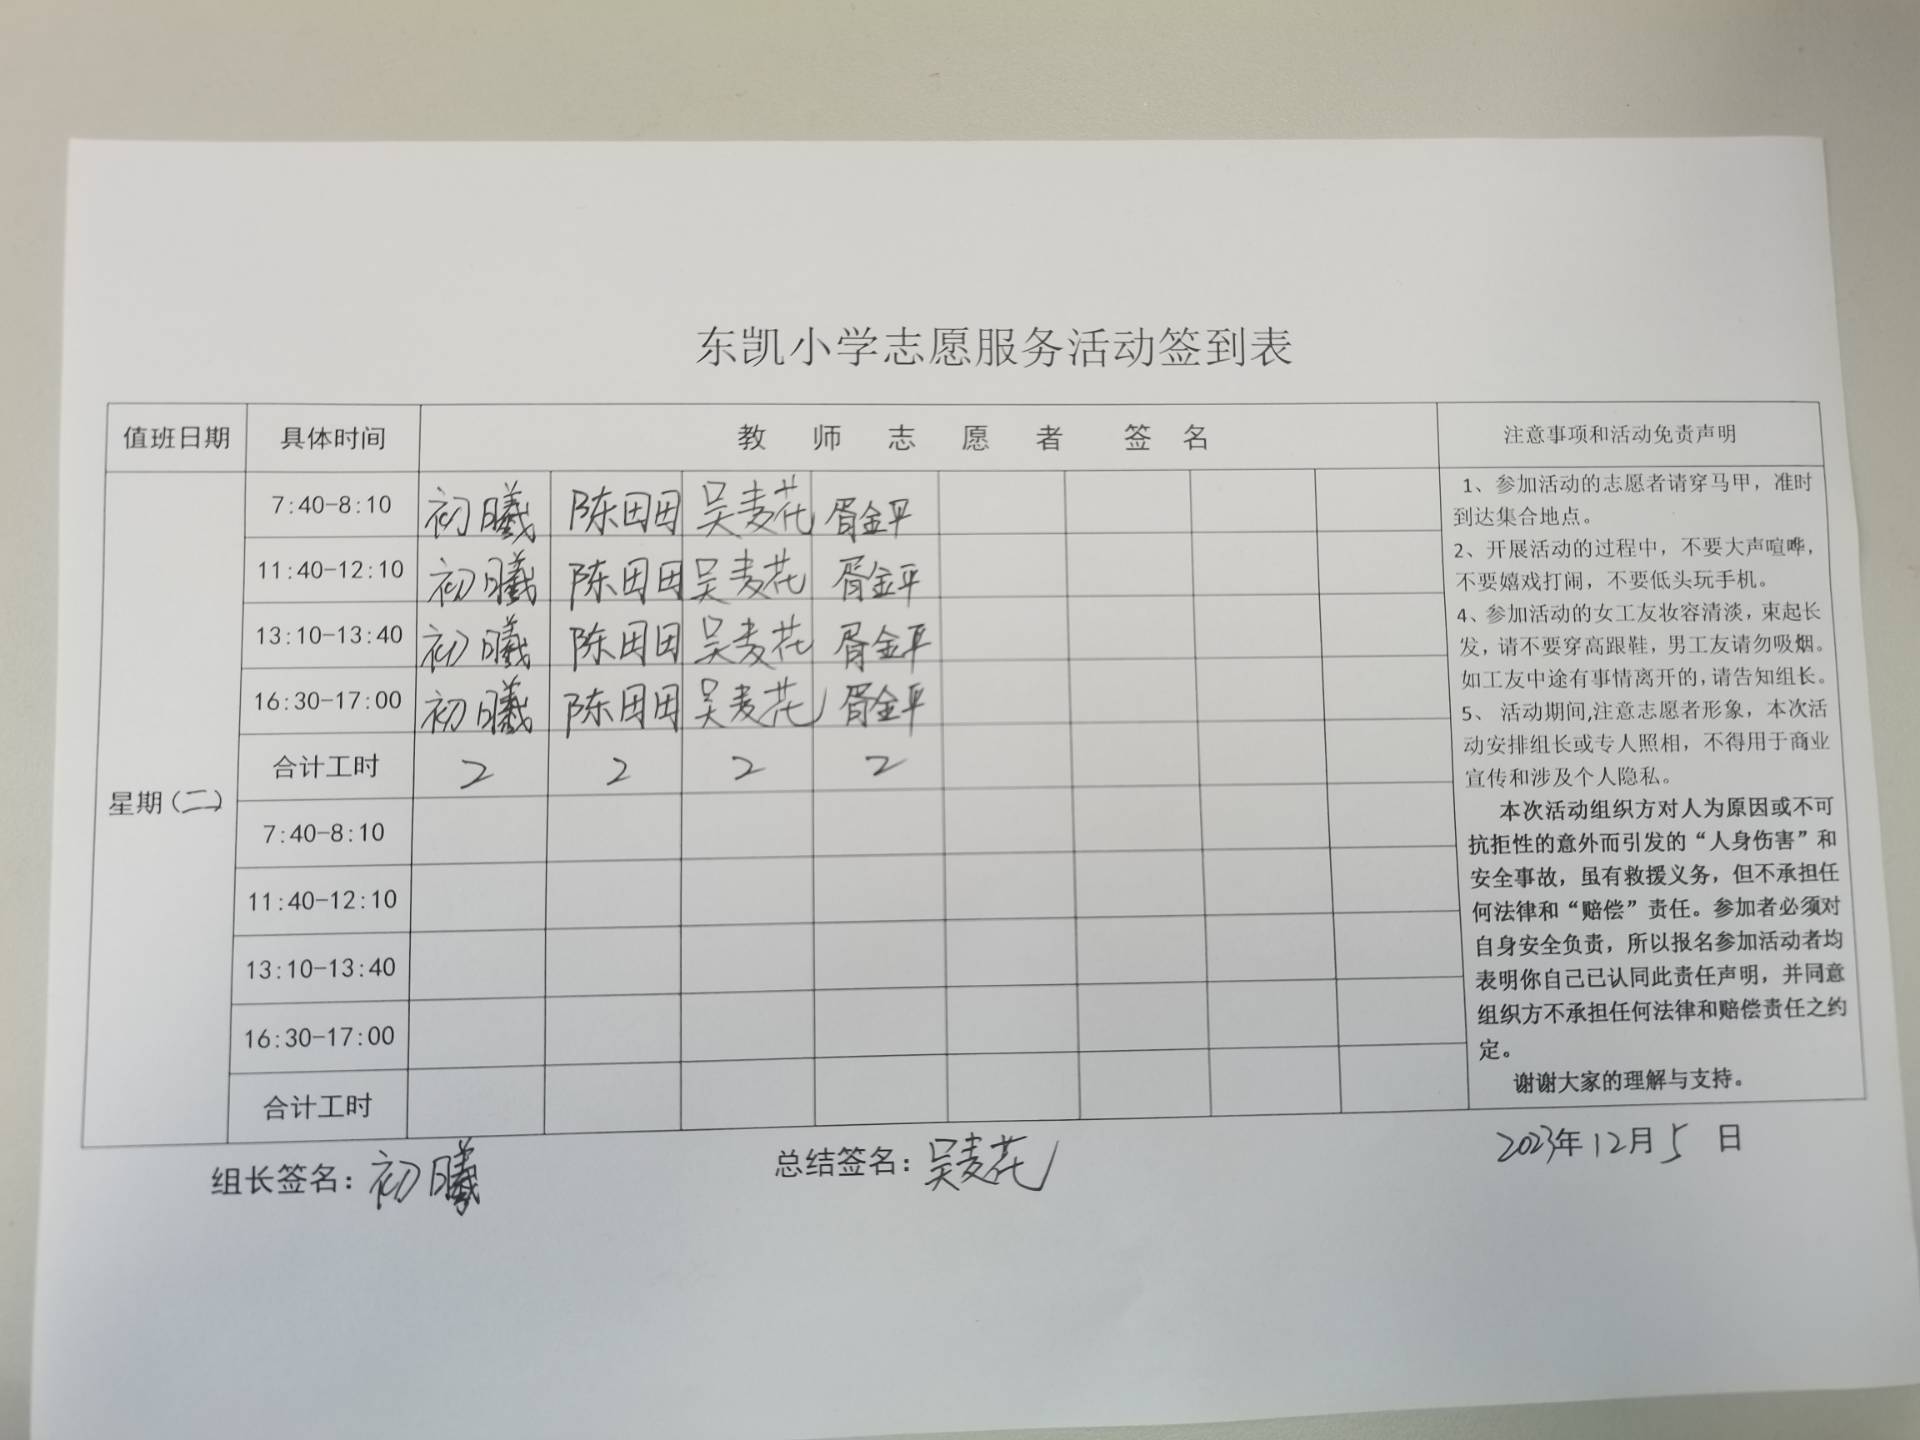 东凯小学志愿服务活动签到表
值班日期 具体时间 教师志愿者 签名 注意事项和活动免责声明
星期(二)
7:40-8:10 初曦 陈田田 吴麦花 胥金平
11:40-12:10 初曦 陈田田 吴麦花 胥金平
13:10-13:40 初曦 陈田田 吴麦花 胥金平
16:30-17:00 初曦 陈田田 吴麦花 胥金平
合计工时 2 2 2 2
7:40-8:10
11:40-12:10
13:10-13:40
16:30-17:00
合计工时
1、参加活动的志愿者请穿马甲，准时
到达集合地点。
2、开展活动的过程中，不要大声喧哗，
不要嬉戏打闹，不要低头玩手机。
4、参加活动的女工友妆容清淡，束起长
发，请不要穿高跟鞋，男工友请勿吸烟。
如工友中途有事情离开的，请告知组长。
5、 活动期间,注意志愿者形象，本次活
动安排组长或专人照相，不得用于商业
宣传和涉及个人隐私。
本次活动组织方对人为原因或不可
抗拒性的意外而引发的“人身伤害”和
安全事故，虽有救援义务，但不承担任
何法律和“赔偿”责任。参加者必须对
自身安全负责，所以报名参加活动者均
表明你自己已认同此责任声明，并同意
组织方不承担任何法律和赔偿责任之约
定。
谢谢大家的理解与支持。
组长签名：初曦 总结签名：吴麦花 2023年12月5日